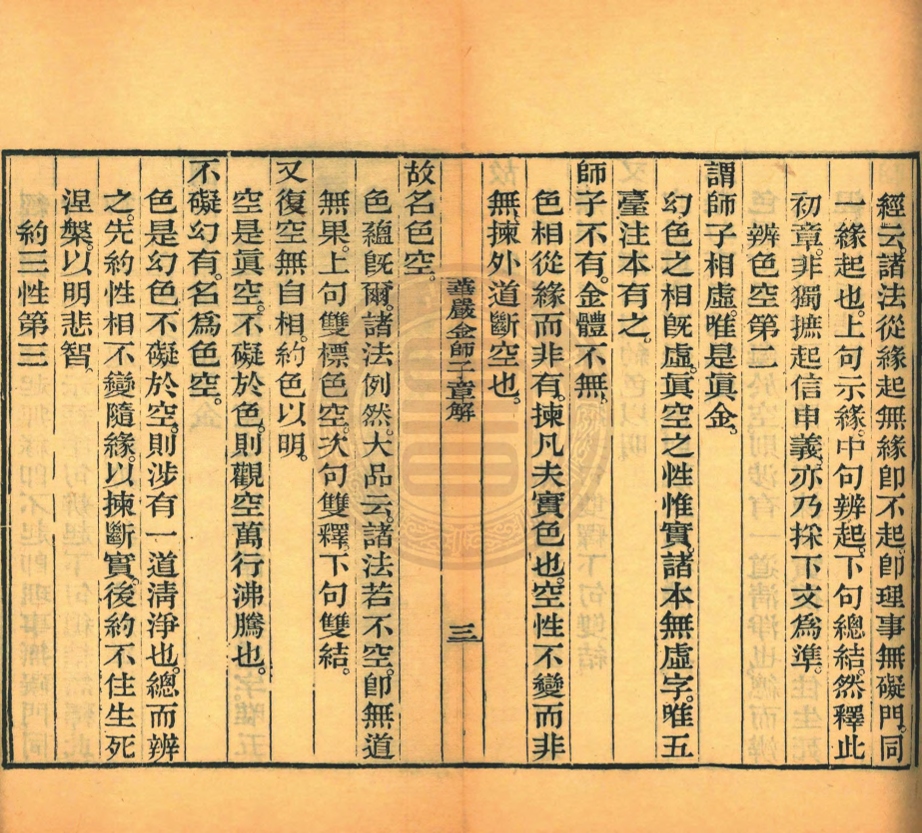 經云。諸法從緣起無緣卽不起。卽理事無礙門。同
一緣起也。上句示緣。中句辨起。下句總結。然釋此
初章。非獨摭起信申義。亦乃採下文爲準。
辨色空第二
謂師子相虛。唯是眞金。
幻色之相旣虛。眞空之性惟實。諸本無虛字。唯五
臺注本有之。
師子不有。金體不無。
色相從緣而非有。揀凡夫實色也。空性不變而非
無。揀外道斷空也。
華嚴金師子章解
三
故名色空。
色蘊旣爾。諸法例然。大品云。諸法若不空。卽無道
無果。上句雙標色空。次句雙釋。下句雙結。
又復空無自相。約色以明。
空是眞空。不礙於色。則觀空萬行沸騰也。
不礙幻有。名爲色空。
色是幻色。不礙於空。則涉有一道淸淨也。總而辨
之。先約性相不變隨緣以揀斷實。後約不住生死
涅槃。以明悲智。
約三性第三